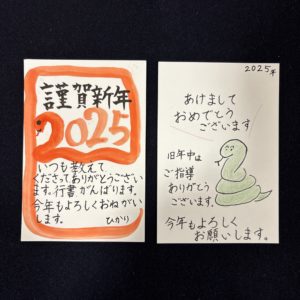 謹賀新年
2025
いつも教えて
くださってありがとうござい
ます。行書がんばります。
今年もよろしくおねがい
します。
ひかり
2025年
あけまして
おめでとう
ございます
旧年中は
ご指導
ありがとう
ございます。
今年もよろしく
お願いします。